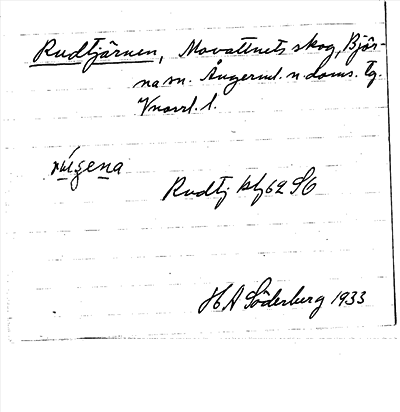 Rudtjärnen, Movattnets skog, Björ-
na sn. Ångerml. n. doms. tg.
Vnorrl. l.
rúgena
Rudtj kbl 62 SO
H A Söderberg 1933